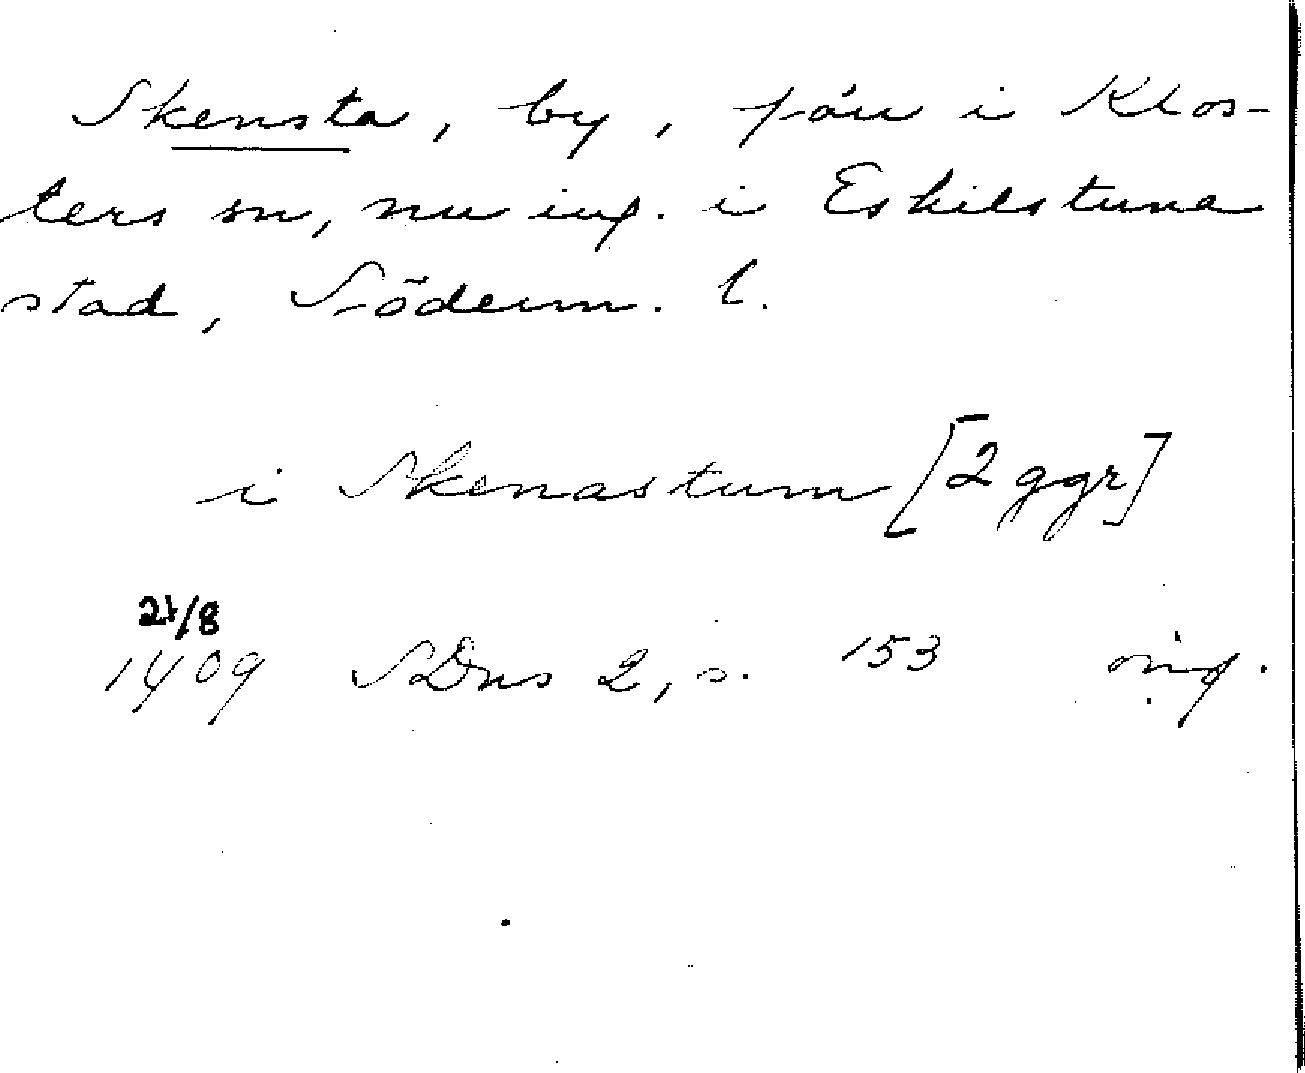 Skensta, by, förr i Klos-
ters sn, nu ing. i Eskilstuna
stad, Söderm. l.
i Skenastum [2 ggr]
21/8
1409 SDns 2, s. 153 orig.